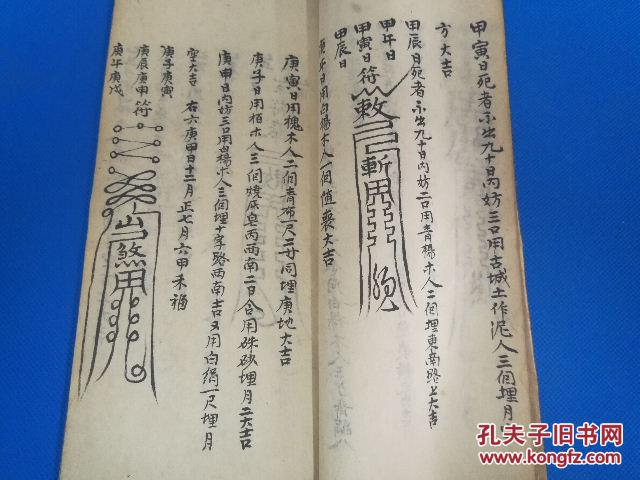 甲寅日死者不出九十日内妨三口用古城土作泥人三個埋月
方大吉
甲辰日死者不出九十日内妨二口用青楊木人二個埋東南路上大吉
甲午日
甲寅日符
甲辰日
敕
斬用
庚午日用白楊木人一個值喪大吉
庚寅日用槐木人二個青布一尺二寸同埋庚地大吉
庚子日用栢木人三個燒灰皂丙西南二日合用硃砂埋月二大吉
庚申日内妨三口用白楊木人三個埋十字路西南吉又用白絹一尺埋月
空大吉 右六庚甲日十二月正七月六甲禾福
庚子庚寅
庚辰庚申符
庚午庚戌
煞用
孔夫子旧书网
www.kongfz.com